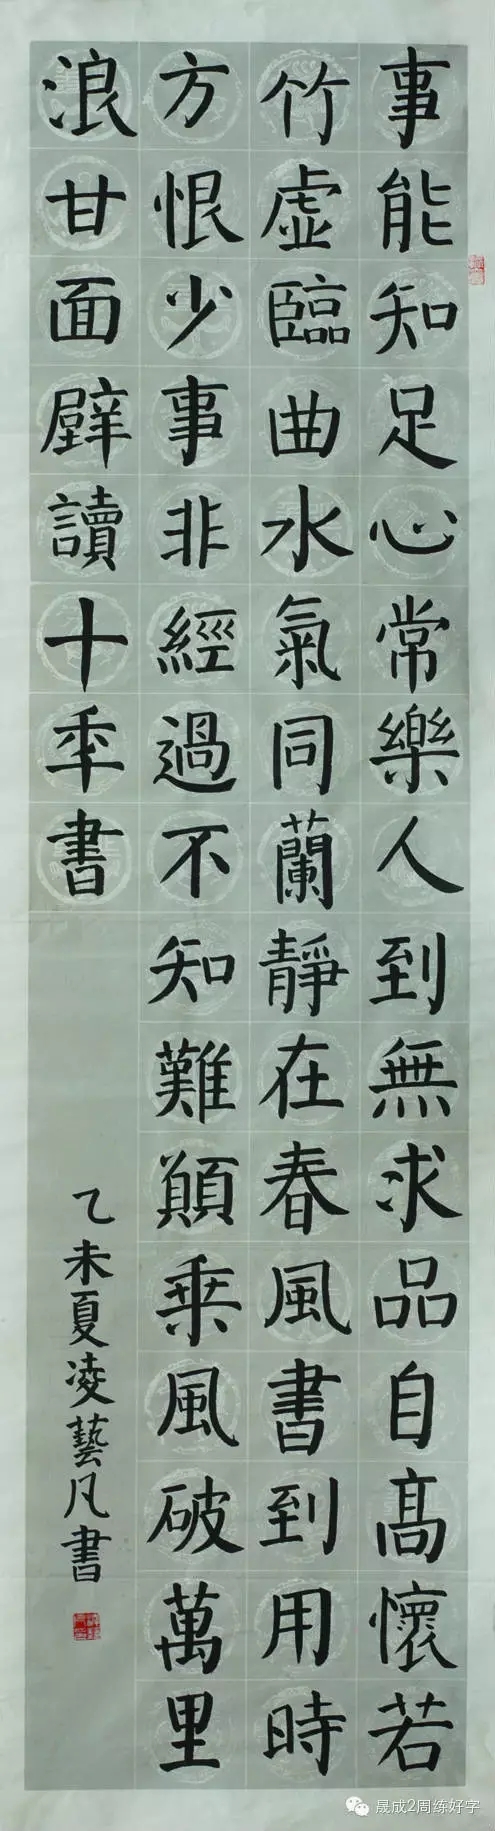 事能知足心常樂人到無求品自高懷若
竹虛臨曲水氣同蘭靜在春風書到用時
方恨少事非經過不知難願乗風破萬里
浪甘面壁讀十年書
乙未夏凌藝凡書
晟成2周练好字